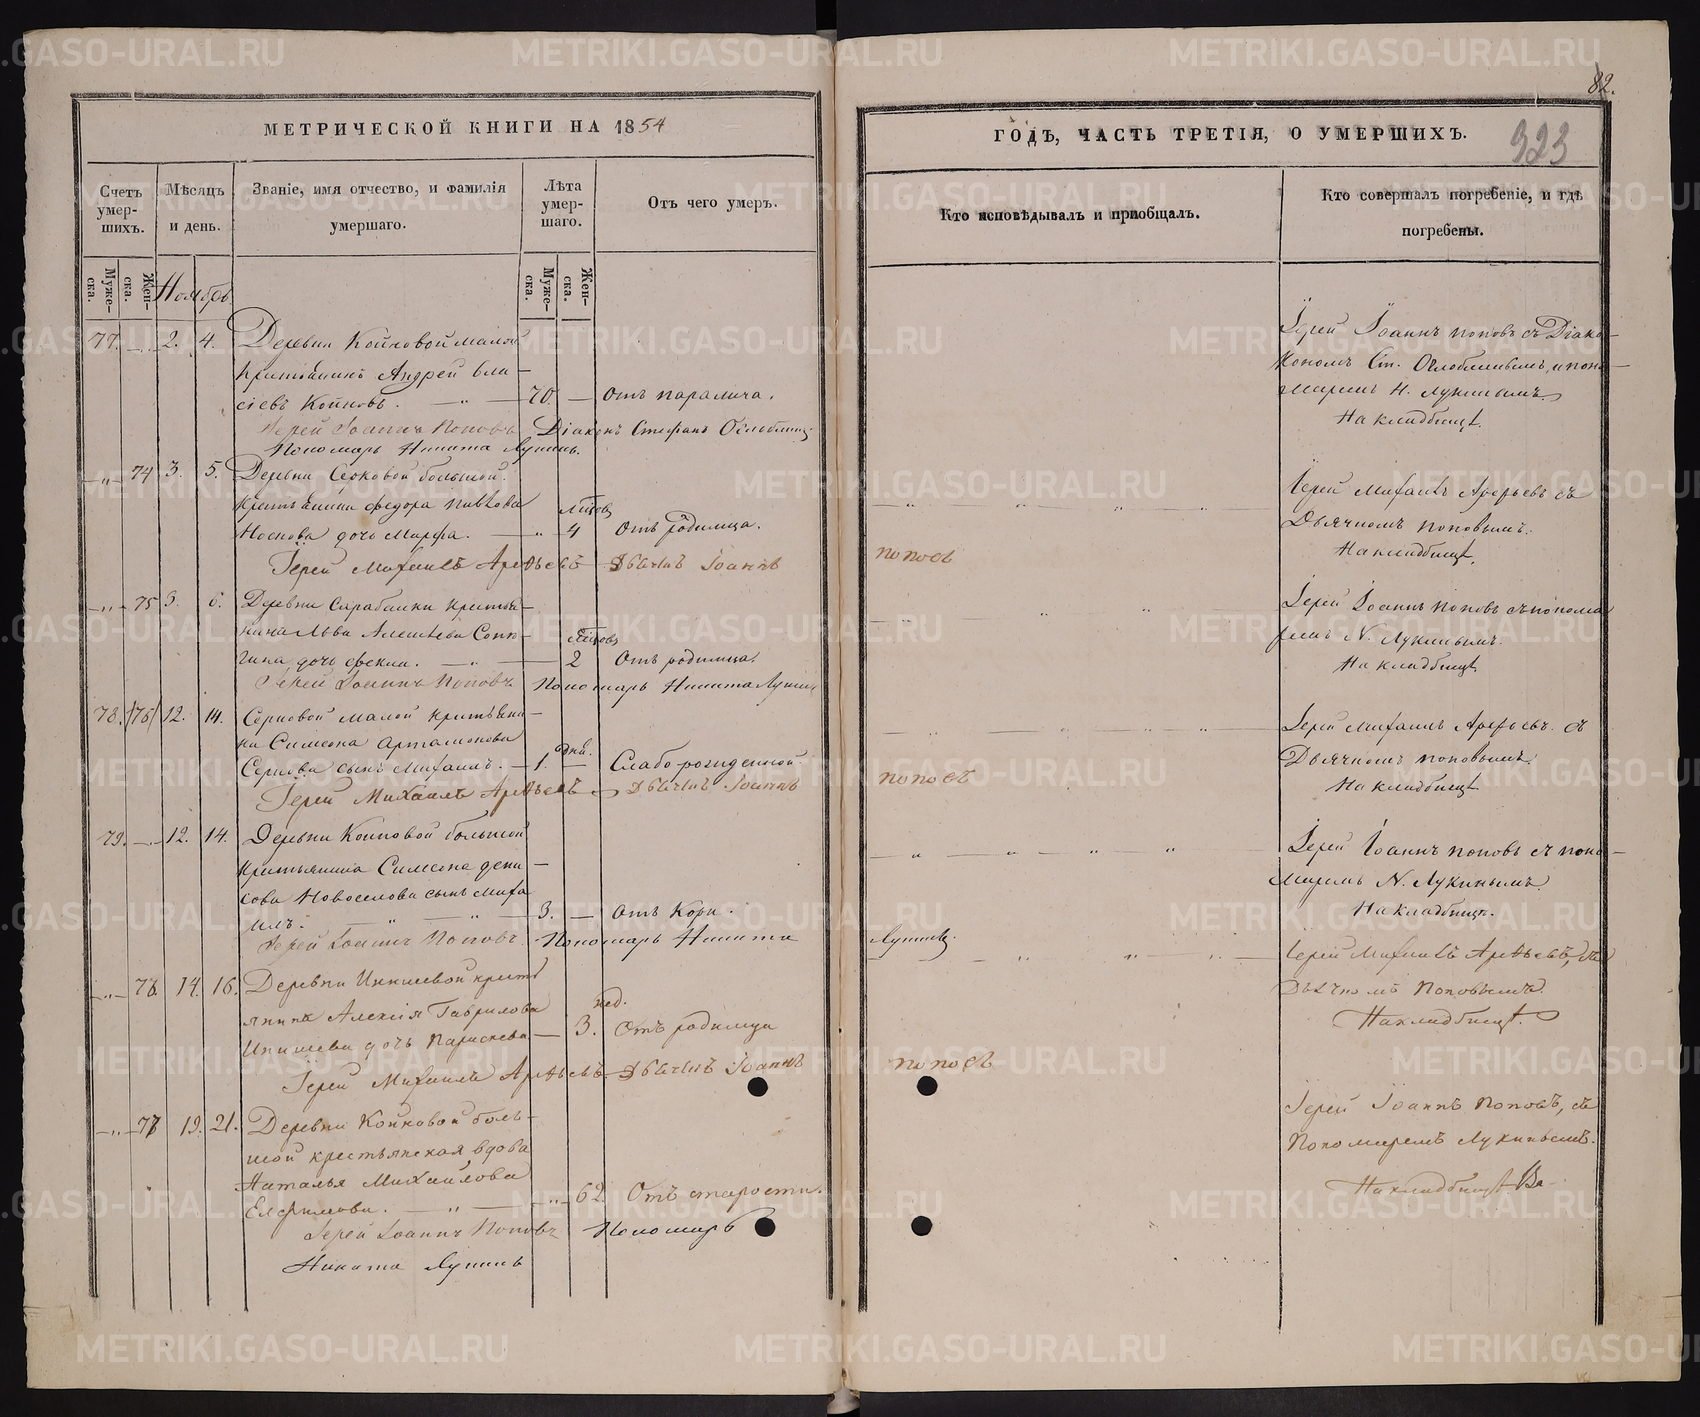 82.
323
МЕТРИЧЕСКОЙ КНИГИ НА 1854
ГОДЪ, ЧАСТЬ ТРЕТІЯ, О УМЕРШИХЪ.
Счетъ умер-шихъ.
Мѣсяцъ и день.
Званіе, имя отчество, и фамилія умершаго.
Лѣта умер-шаго.
Отъ чего умеръ.
Кто исповѣдывалъ и пріобщалъ.
Кто совершалъ погребеніе, и гдѣ погребены.
Муже-ска.
Жен-ска.
Муже-ска.
Жен-ска.
Ноябрь
77. 2. 4. Деревни Койновой малой
крестьянинъ Андрей Вла-
сіевъ Койновъ. 70. Отъ паралича.
Іерей Іоаннъ Поповъ Діаконъ Стефанъ
Пономарь Никита Лукинъ.
Іерей Іоаннъ Поповъ съ Діако-
кономъ Ст. и поно-
маремъ Н. Лукинымъ
На кладбищѣ.
74 3. 5. Деревни Серковой большой.
крестьянина Федора
Носкова дочь Марфа. лѣтовъ 4 Отъ родимца.
Іерей Михаилъ Арефьевъ Дьячекъ Іоаннъ
Поповъ
Іерей Михаилъ Арефьевъ съ
Дьячкомъ Поповымъ.
На кладбищѣ.
75 3. 6. Деревни Сарабаики крестья-
нина Льва Алексѣева
дочь Фекла. лѣтовъ 2 Отъ родимца.
Іерей Іоаннъ Поповъ Пономарь Никита Лукинъ
Іерей Іоаннъ Поповъ съ понома
ремъ N. Лукинымъ.
На кладбищѣ
78. 76 12. 14. Серковой малой крестьяни-
на Симеона Артамонова
Серкова сынъ Михаилъ. 1. дня. Слабо рожденной.
Іерей Михаилъ Арефьевъ Дьячекъ Іоаннъ
Поповъ
Іерей Михаилъ Арефьевъ съ
Дьячкомъ Поповымъ.
На кладбищѣ
79. 12. 14. Деревни Койновой большой
крестьянина Симеона Дени-
сова Новоселова сынъ Миха
илъ. 3. Отъ Кори.
Іерей Іоаннъ Поповъ Пономарь Никита
Лукинъ.
Іерей Іоаннъ Поповъ съ поно-
маремъ N. Лукинымъ
На кладбищѣ.
14. 16. Деревни Инишевой кресть
янина Алексія Гаврилова
Инишева дочь Параскева нед. 3. Отъ родимца
Іерей Михаилъ Арефьевъ Дьячекъ Іоаннъ
Поповъ
Іерей Михаилъ Арефьевъ, съ
Дьячкомъ Поповымъ.
На кладбищѣ.
77 19. 21. Деревни Койновой боль-
шой крестьянская вдова
Наталья Михаилова
Елфимова. 62 Отъ старости.
Іерей Іоаннъ Поповъ Пономарь
Никита Лукинъ
Іерей Іоаннъ Поповъ, съ
Пономаремъ Лукинымъ.
На кладбищѣ
METRIKI.GASO-URAL.RU